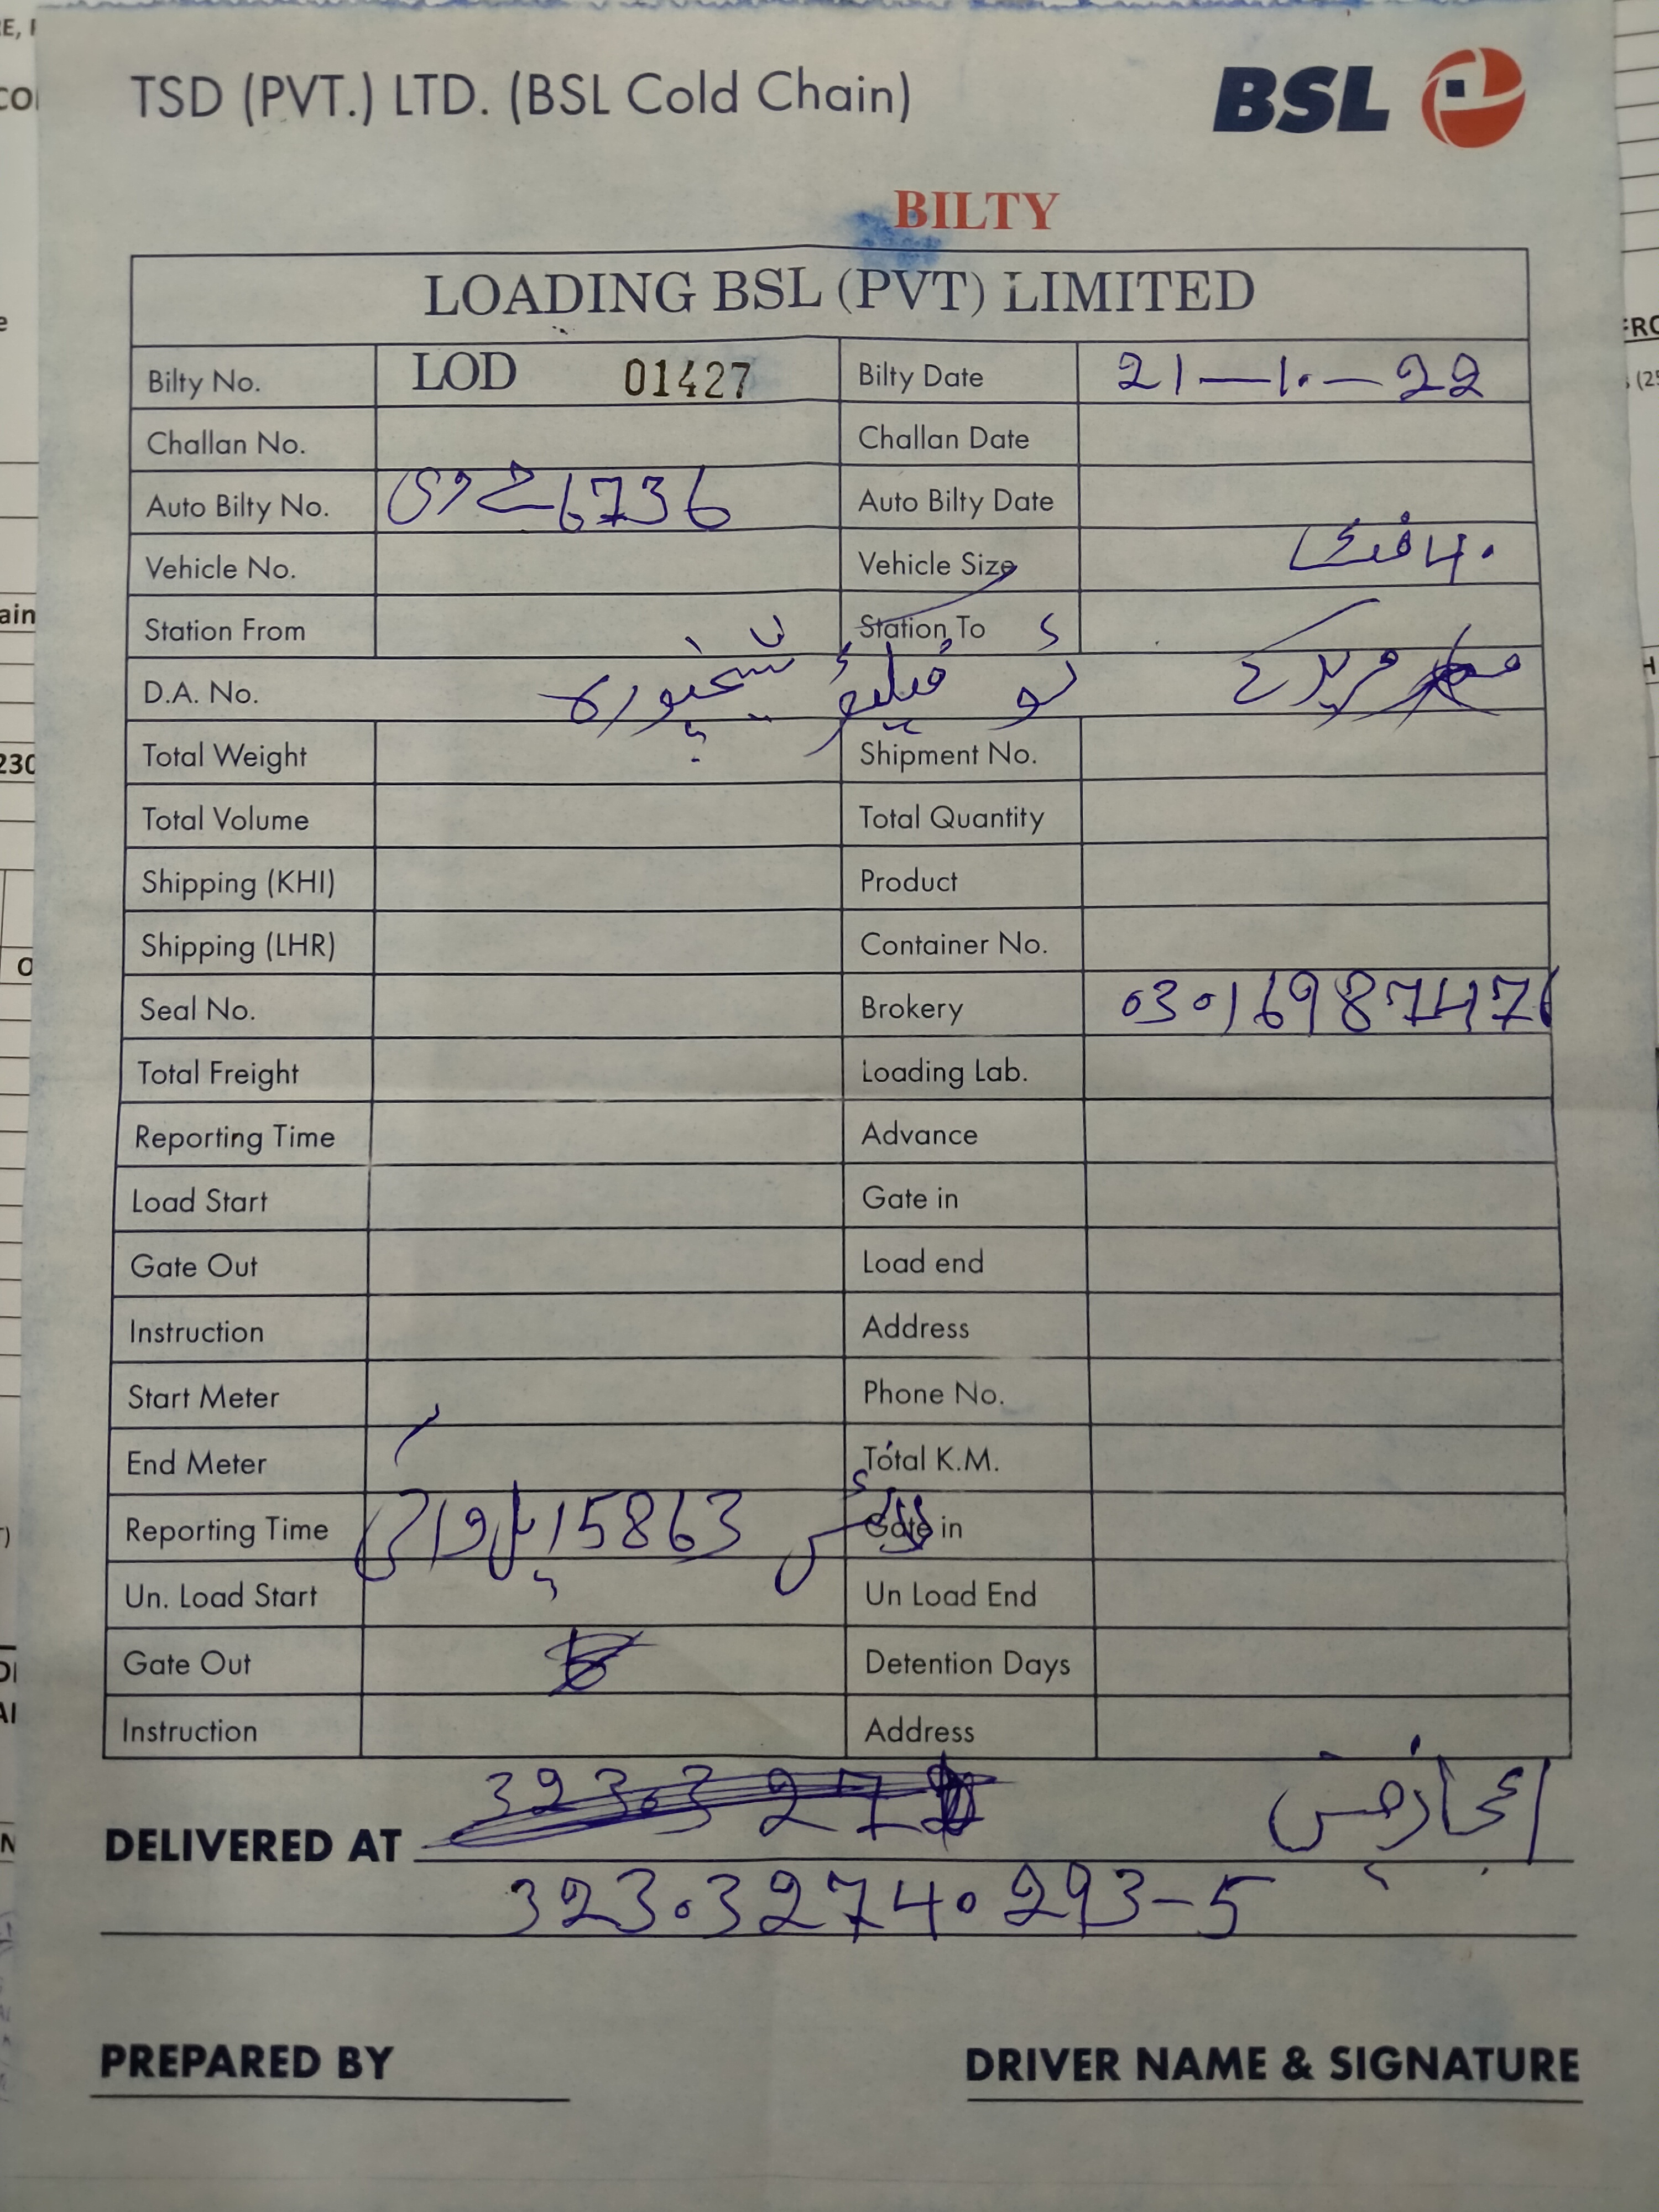 TSD (PVT.) LTD. (BSL Cold Chain)
BSL
BILTY
LOADING BSL (PVT) LIMITED
Bilty No. LOD 01427 Bilty Date 21—1۰—22
Challan No. Challan Date
Auto Bilty No. 6736 Auto Bilty Date
Vehicle No. Vehicle Size ۴۰ فٹ
Station From Station To
D.A. No. مریدکے ٹو شیخوپورہ
Total Weight Shipment No.
Total Volume Total Quantity
Shipping (KHI) Product
Shipping (LHR) Container No.
Seal No. Brokery 0301698747
Total Freight Loading Lab.
Reporting Time Advance
Load Start Gate in
Gate Out Load end
Instruction Address
Start Meter Phone No.
End Meter Total K.M.
Reporting Time 15863 Gate in
Un. Load Start Un Load End
Gate Out Detention Days
Instruction Address
DELIVERED AT
323۰3274۰293-5
PREPARED BY DRIVER NAME & SIGNATURE